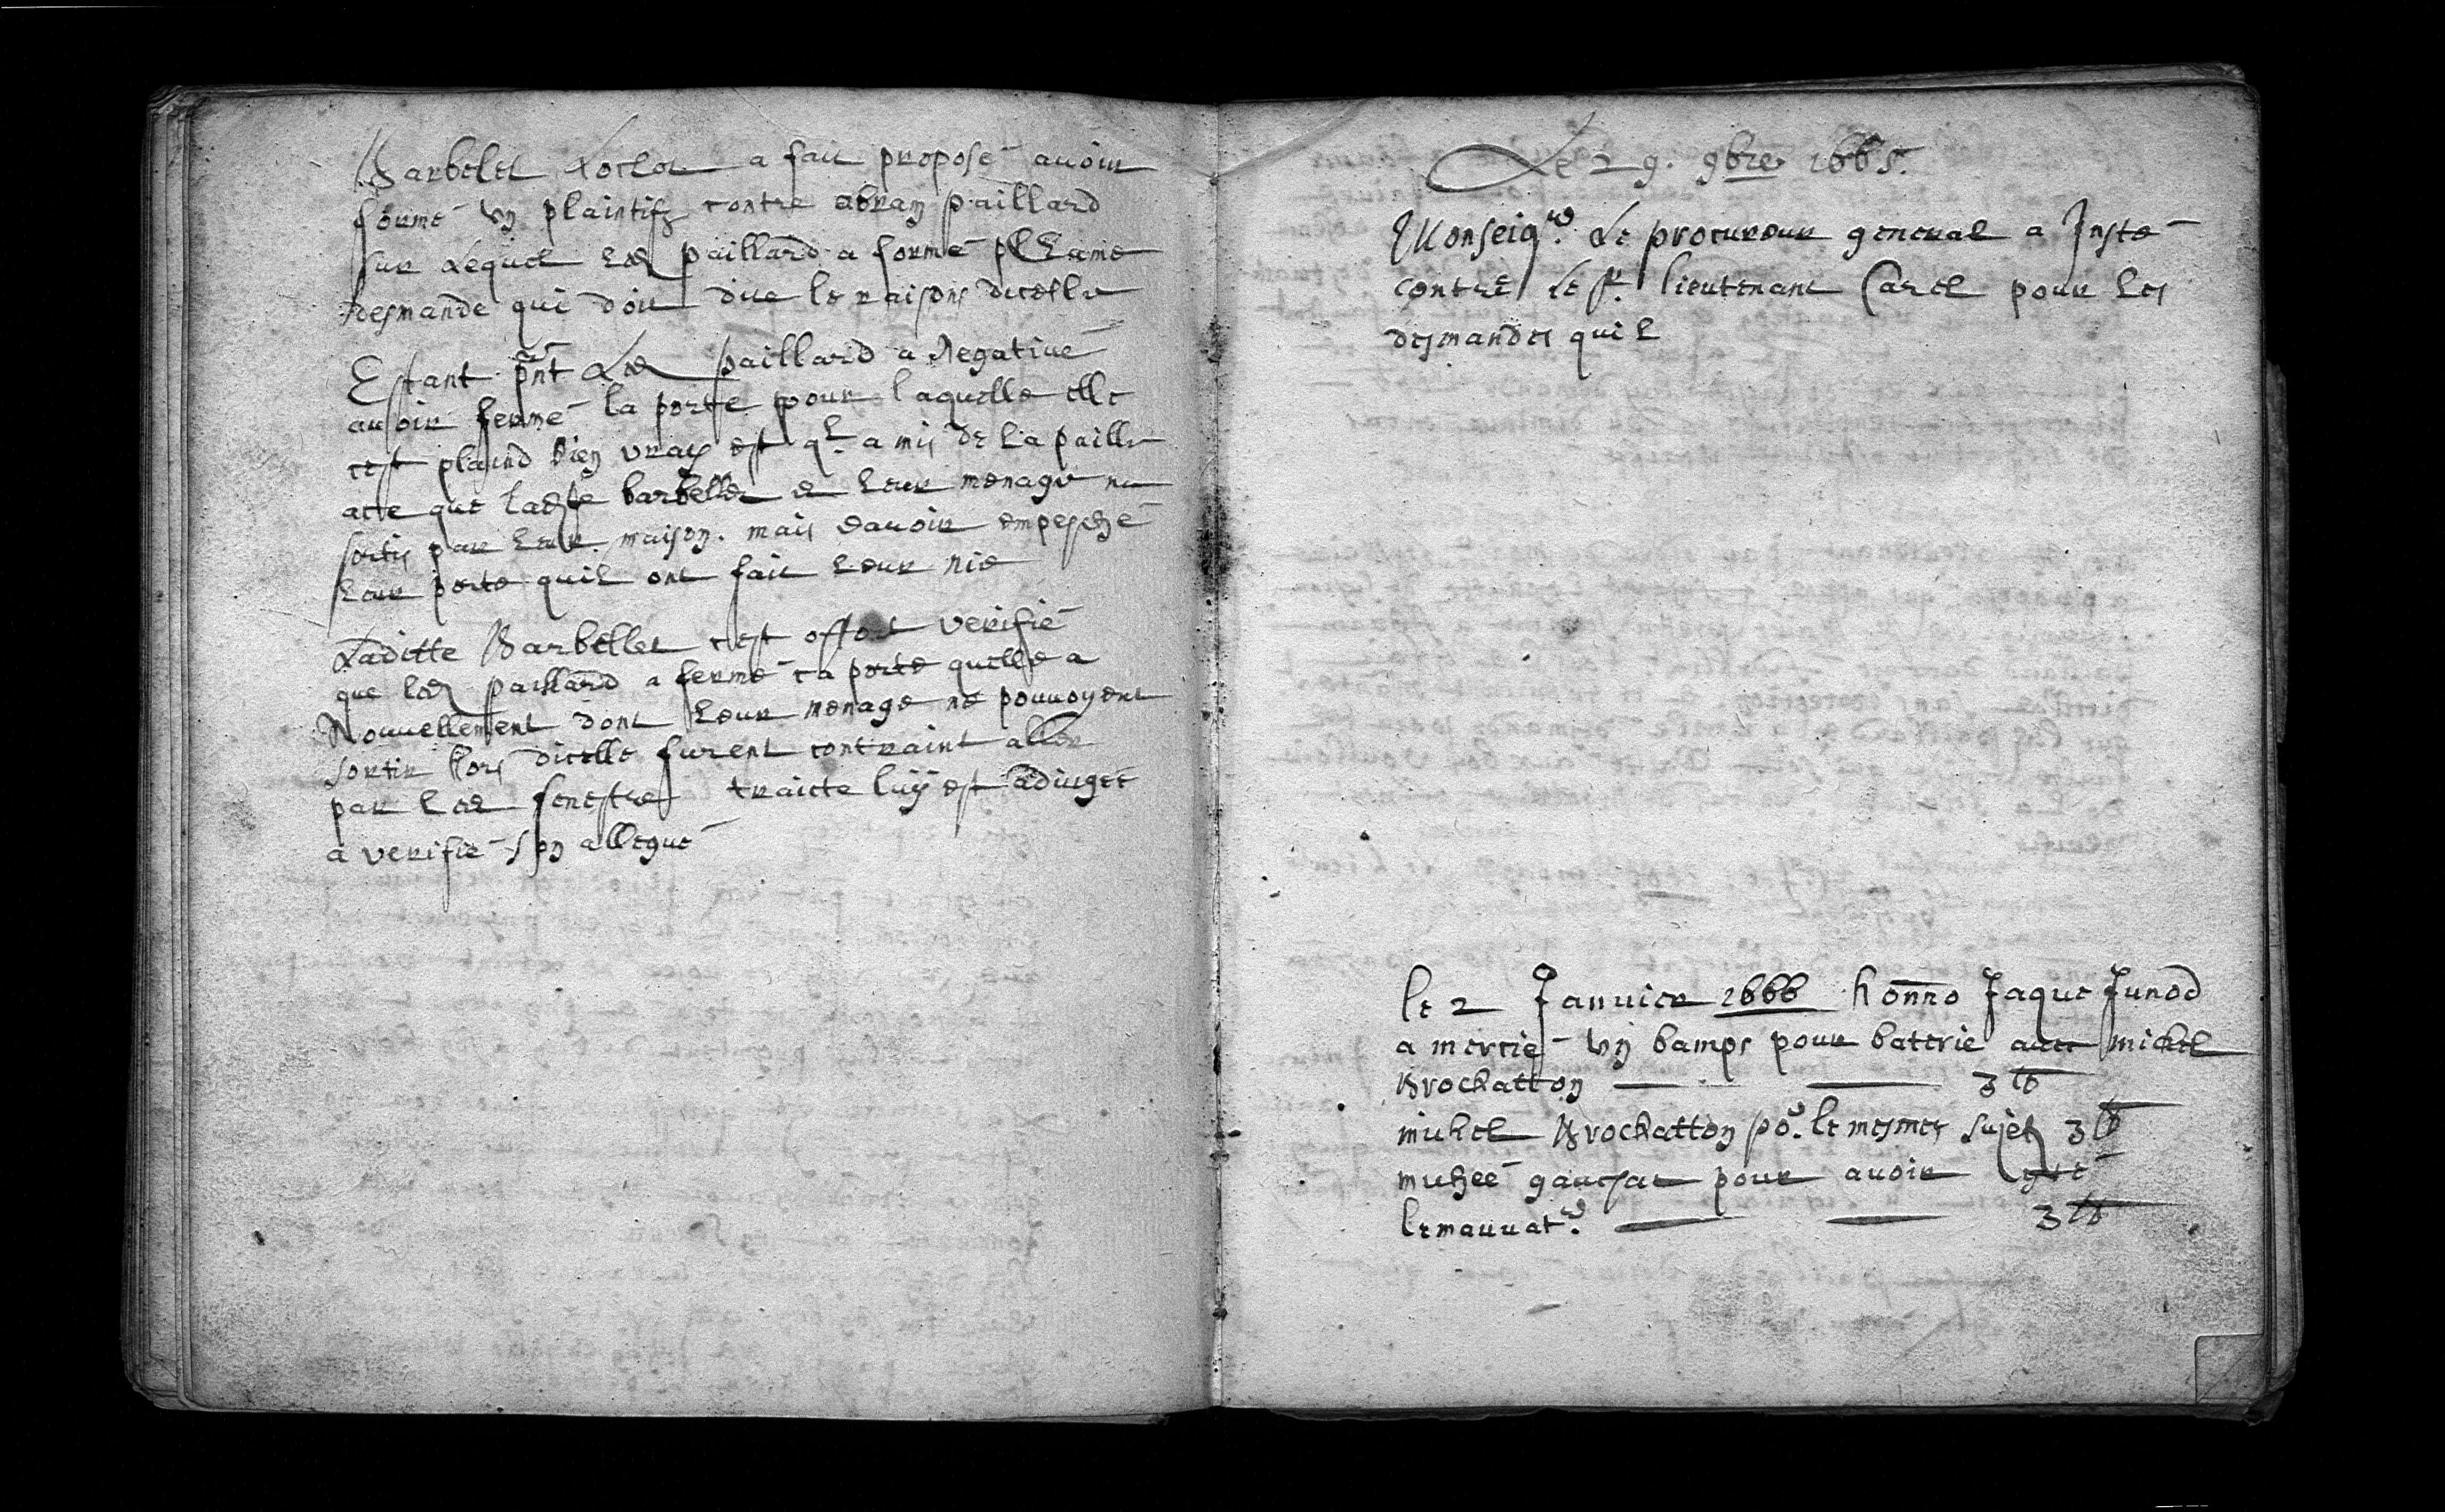 Barbelet Loclat a fait proposé auoir
formé vn plaintifz contre abram paillard
sur Lequel led paillard a formé pllame
desmande qui doit dire le raisons dicelle
Estant pnt Led paillard a Negatiué
auoir fermé la porte pour laquelle elle
cest plaind bien vray est ql a mis de la paille
que ladte barbellet & leur menage ne
sortis par leur maison. mais dauoir empesché
leur porte quil ont fait leur nie
Laditte Barbellet cest offert verifié
que led paillard a fermé sa porte quelle a
Nouuellement dont leur menage ne pouuoyent
sortir hors dicelle furent contraint aller
par les fenestre traicte luy est adiugée
a verifié son allegué
Le 29. 9bre 1665.
Monseigr. Le procureur general a Insté
contre le sr. lieutenant Carel pour les
desmandes quil
le 2 Januier 1666 honno Jaque Junod
a mercié vn bamps pour baterie auec michel
Brochatton 3 lb
michel Brochatton po. le mesmes sujet 3 lb
gauchat pour auoir
3 lb